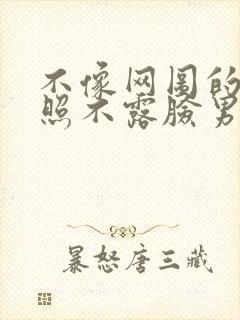 不像网图的
照不露脸男
暴怒唐三藏